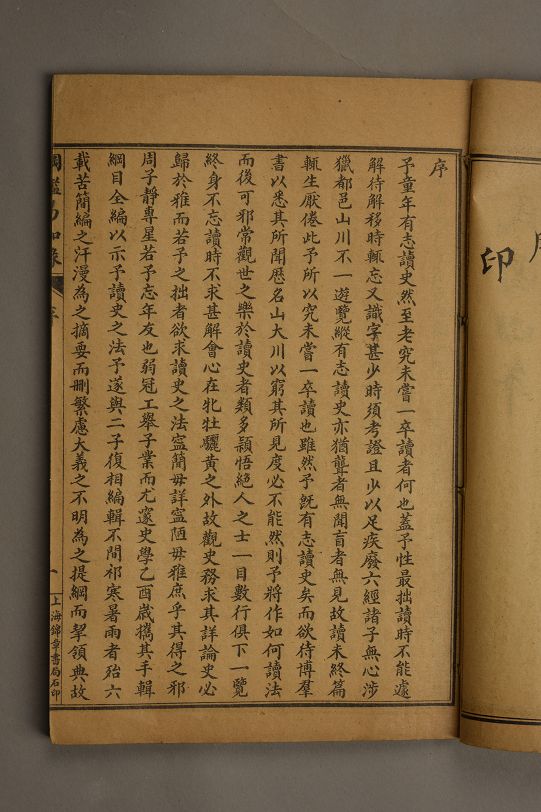 印
序
予童年有志讀史然至老究未嘗一卒讀者何也蓋予性最拙讀時不能遽
解待解移時輒忘又識字甚少時須考證且少以足疾廢六經諸子無心涉
獵都邑山川不一遊覽縱有志讀史亦猶聾者無聞盲者無見故讀未終篇
輒生厭倦此予所以究未嘗一卒讀也雖然予旣有志讀史矣而欲待博羣
書以悉其所聞歴名山大川以窮其所見度必不能然則予將作如何讀法
而後可邪常觀世之樂於讀史者類多穎悟絕人之士一目數行俱下一覽
終身不忘讀時不求甚解會心在牝牡驪黃之外故觀史務求其詳論史必
歸於雅而若予之拙者欲求讀史之法寍簡毋詳寍陋毋雅庶乎其得之邪
周子靜專星若予忘年友也弱冠工舉子業而尤邃史學乙酉歲攜其手輯
綱目全編以示予讀史之法予遂與二子復相編輯不間祁寒暑雨者殆六
載苦簡編之汗漫為之摘要而刪繁慮大義之不明為之提綱而挈領典故
綱鑑易知錄
序
一
上海錦章書局石印